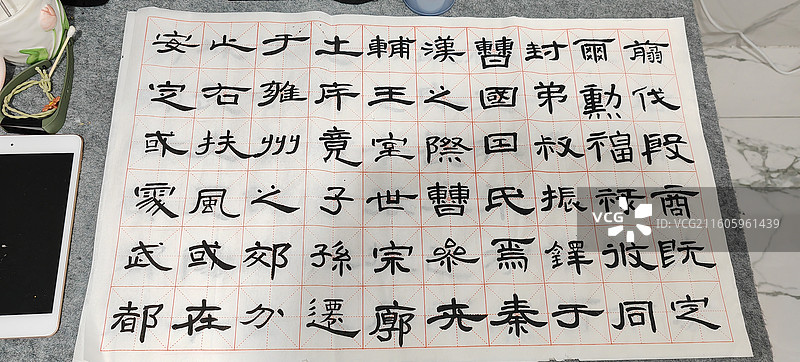 翦伐殷商既定
爾勳福祿攸同
封弟叔振鐸于
曹國因氏焉秦
漢之際曹參夾
輔王室世宗廓
土斥竟子孫遷
于雍州之郊分
止右扶風或在
安定或處武都
VCG
VCG211605961439